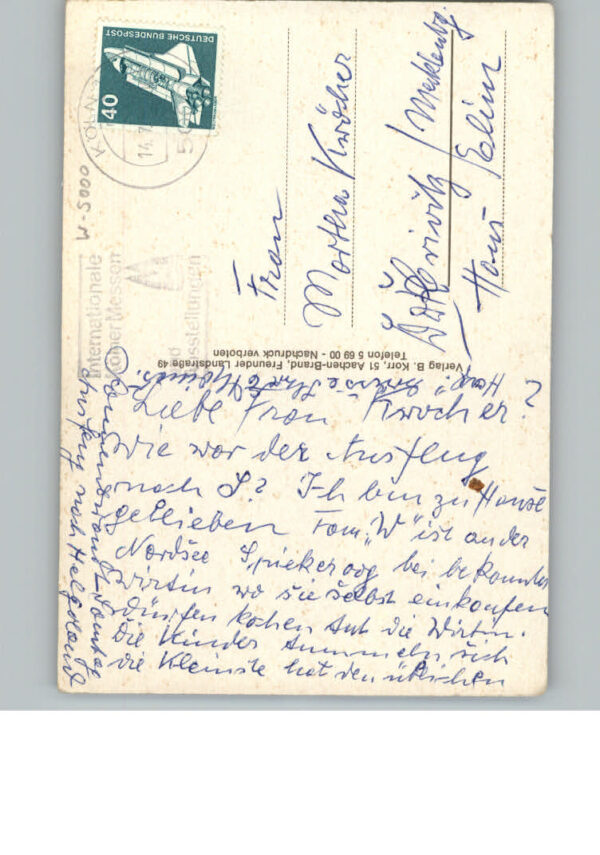 DEUTSCHE BUNDESPOST
40
KÖLN
14.7
W-5000
Internationale
Kölner Messen
Ausstellungen
Frau
Martha Kröcher
Dobbrivitz / Mecklenbg.
Haus Elim
Verlag B. Korr, 51 Aachen-Brand, Freunder Landstraße 49
Telefon 5 69 00 - Nachdruck verboten
Liebe Frau Kröcher?
wie war der Ausflug
nach S.? Ich bin zu Hause
geblieben Fam. "W" ist an der
Nordsee Spiekeroog bei bekannter
Wirtin wo sie selbst einkaufen
dürfen kochen tut die Wirtin.
Die Kinder tummeln sich
die Kleinste hat den üblichen
nach Helgoland